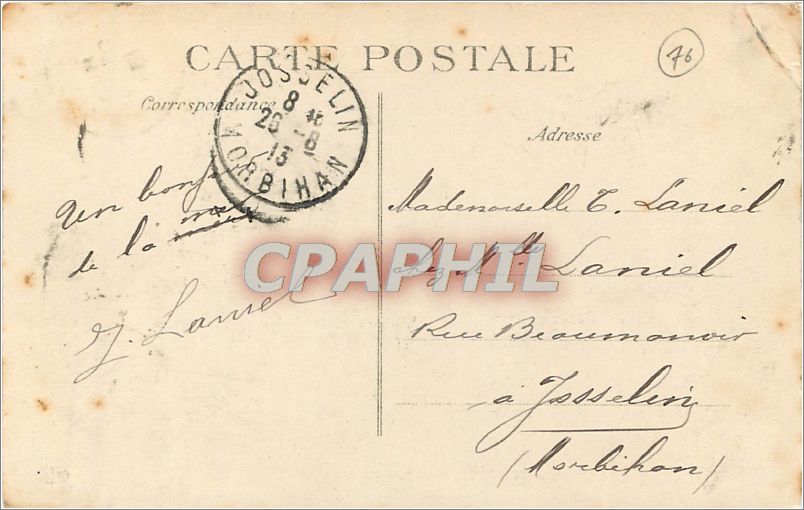 CARTE POSTALE
76
Correspondance
JOSSELIN
8 45
26 - 8
13
MORBIHAN
Adresse
Un bonj
de la
J. Laniel
Mademoiselle T. Laniel
chez Mlle Laniel
Rue Beaumanoir
à Josselin
(Morbihan)
CPAPHIL